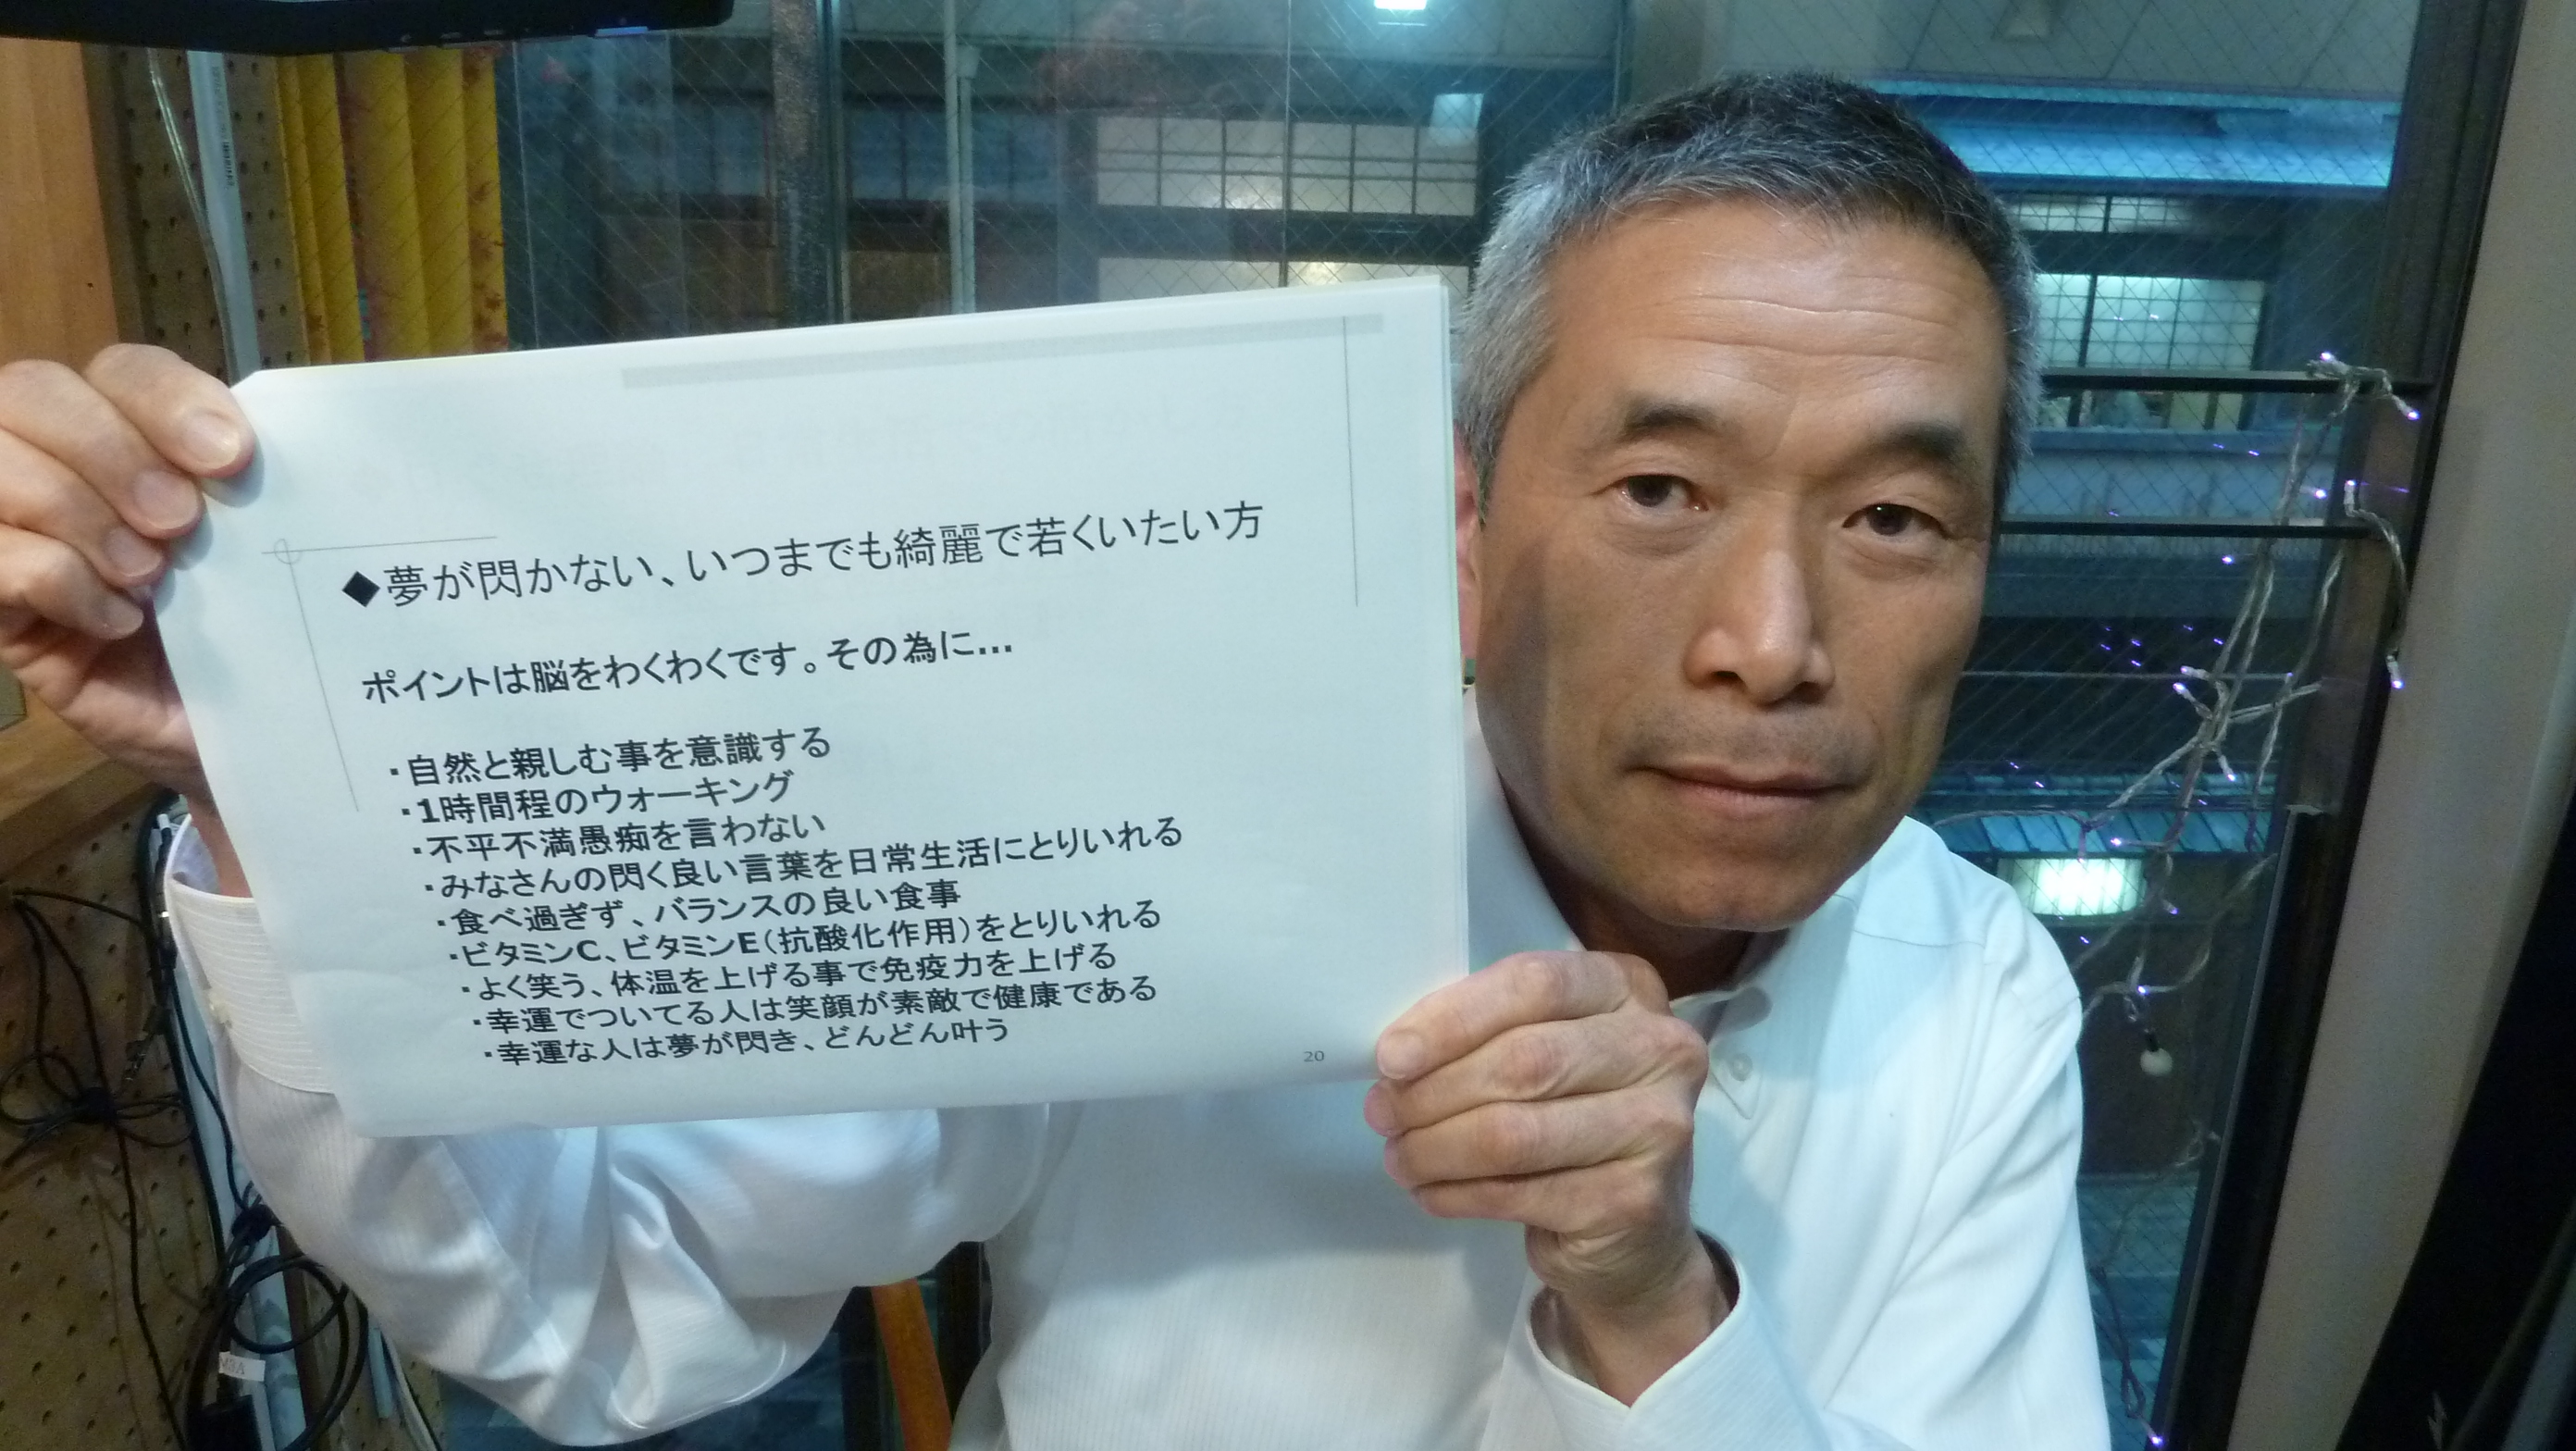 ◆夢が閃かない、いつまでも綺麗で若くいたい方
ポイントは脳をわくわくです。その為に…
・自然と親しむ事を意識する
・1時間程のウォーキング
・不平不満愚痴を言わない
・みなさんの閃く良い言葉を日常生活にとりいれる
・食べ過ぎず、バランスの良い食事
・ビタミンC、ビタミンE（抗酸化作用）をとりいれる
・よく笑う、体温を上げる事で免疫力を上げる
・幸運でついてる人は笑顔が素敵で健康である
・幸運な人は夢が閃き、どんどん叶う
20